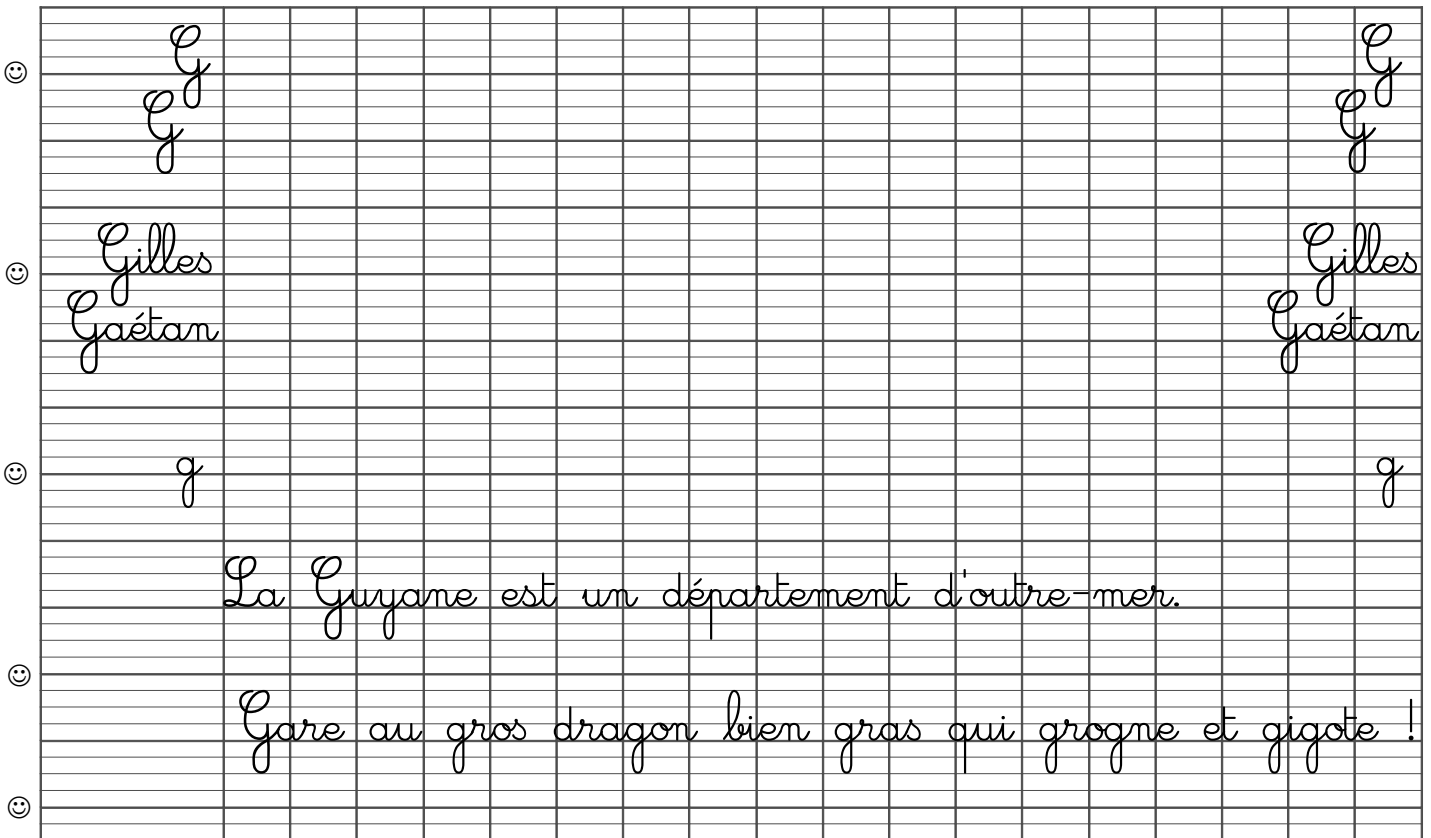 G G
G G
Gilles Gilles
Gaétan Gaétan
g g
La Guyane est un département d'outre-mer.
Gare au gros dragon bien gras qui grogne et gigote !